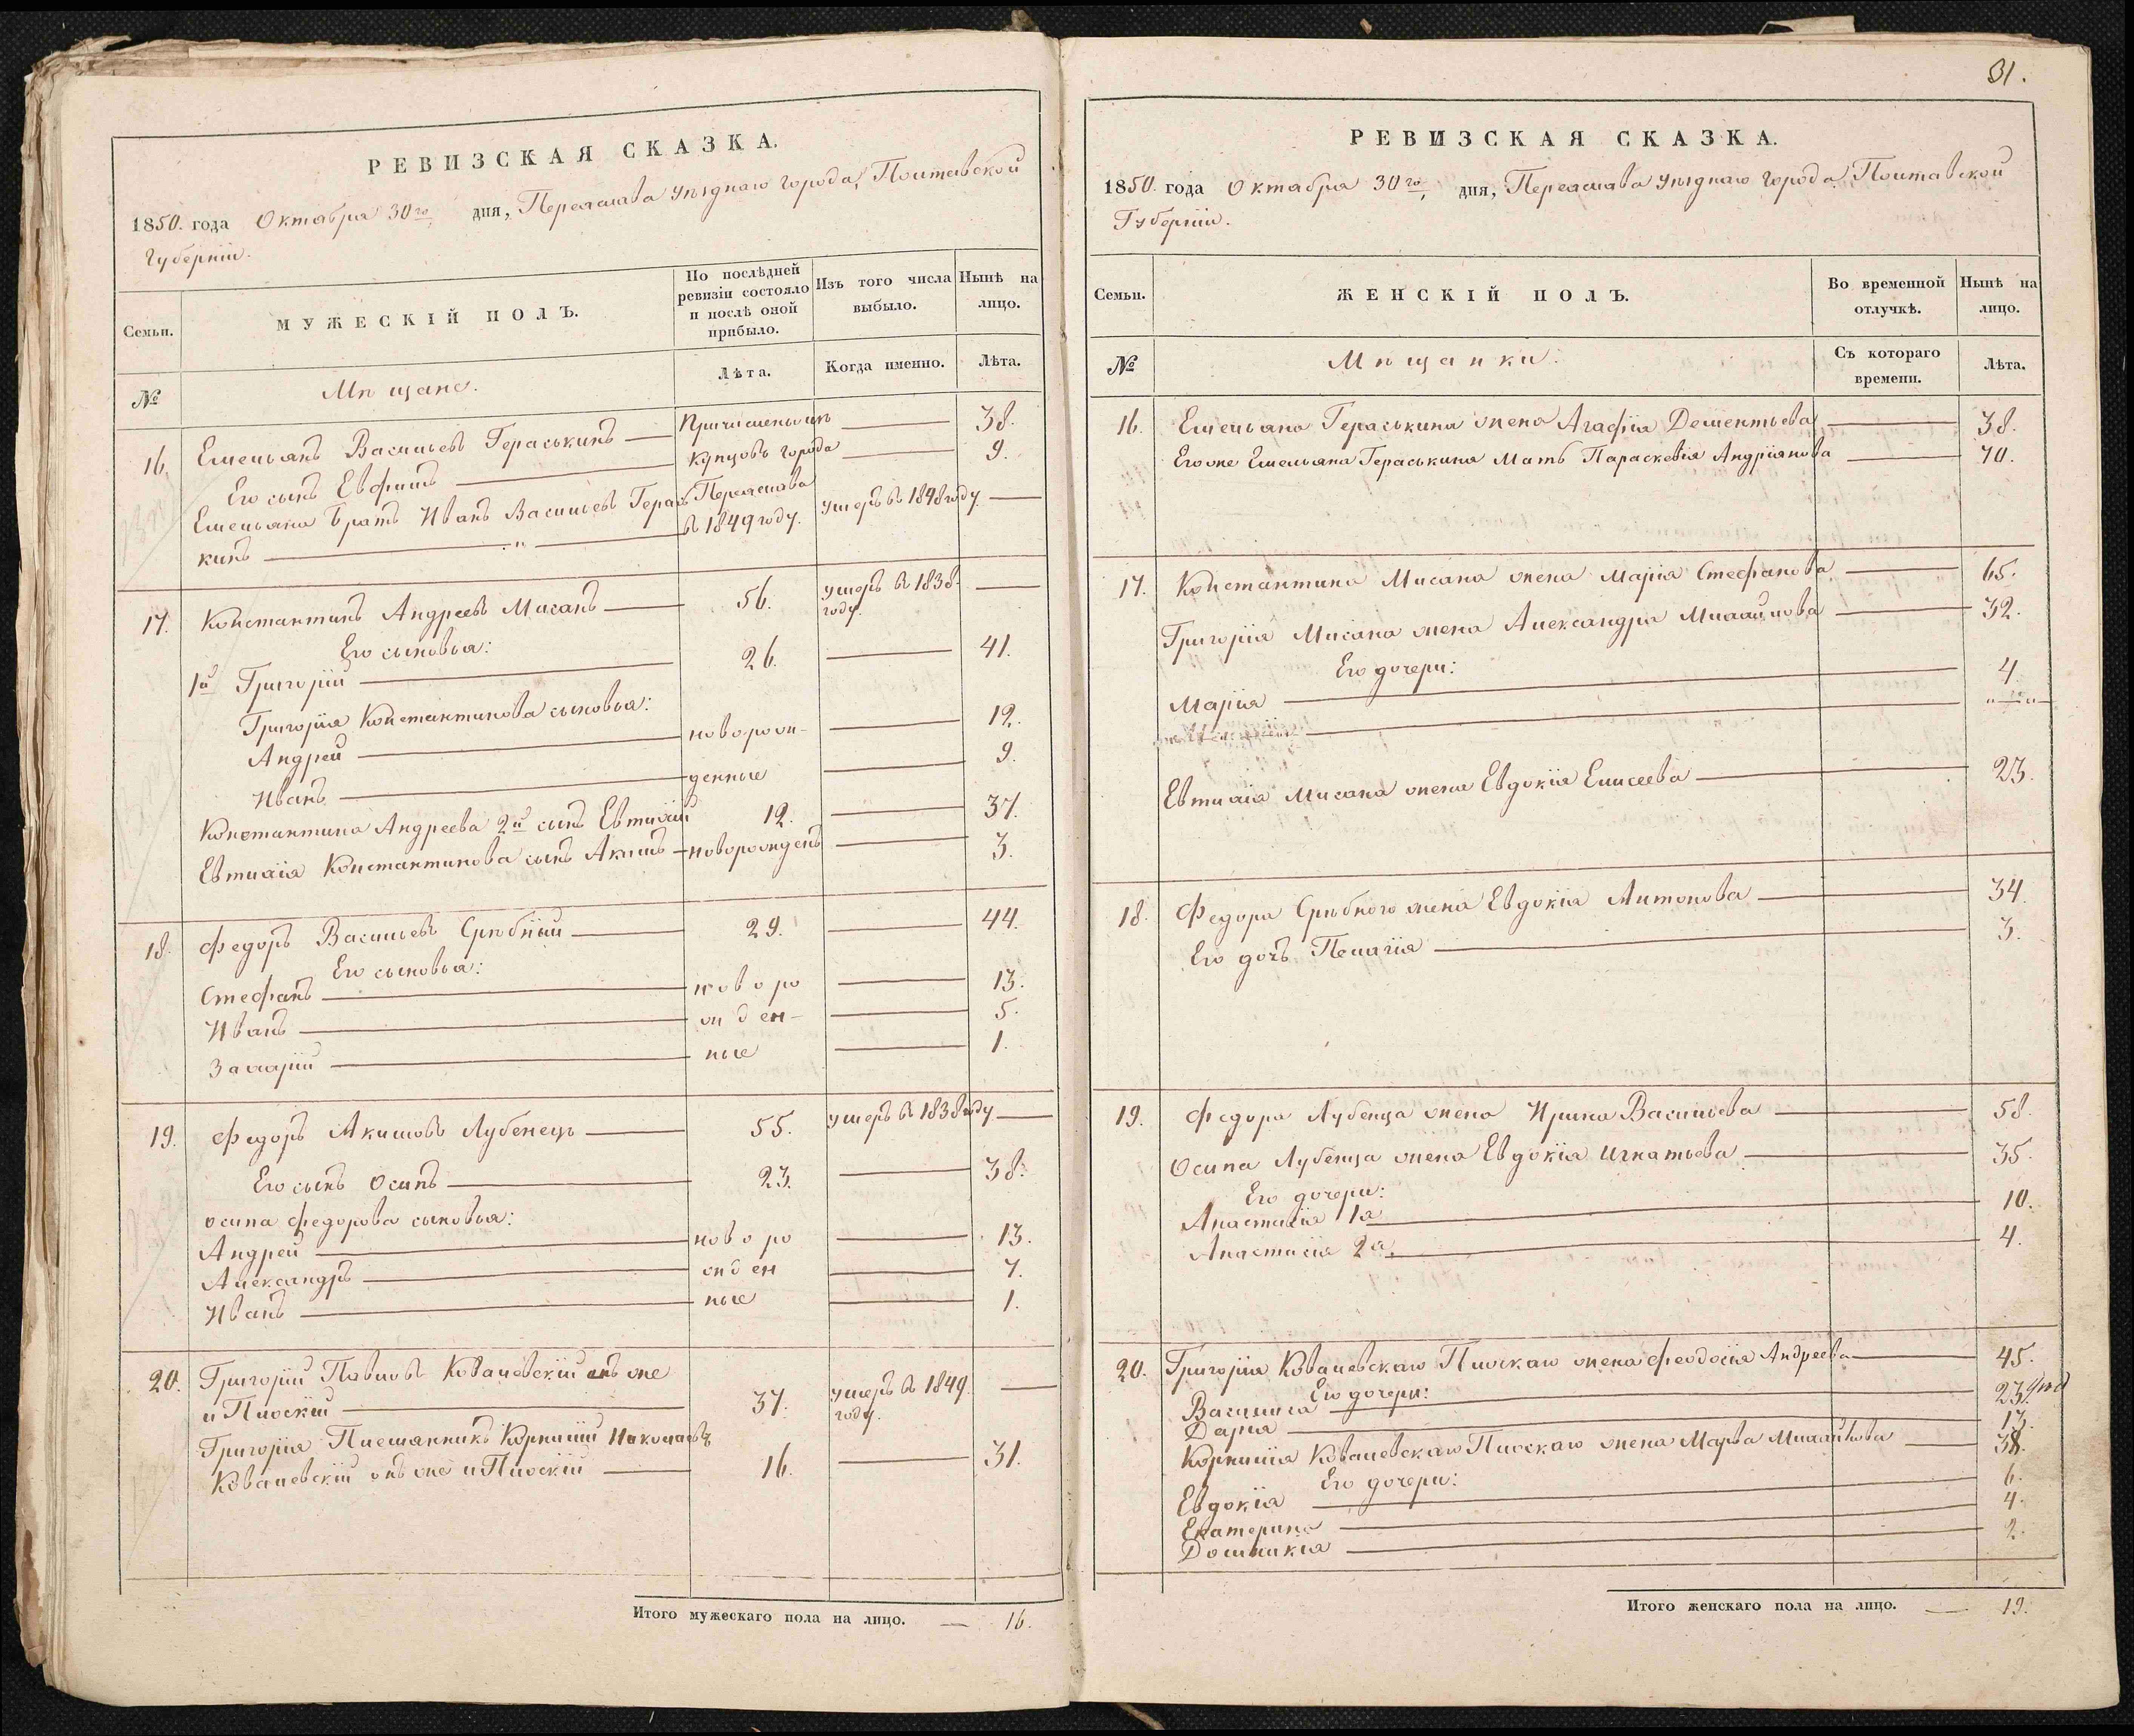 РЕВИЗСКАЯ СКАЗКА.
1850. года Октября 30го, дня, Переяслава уѣзднаго города, Полтавской
Губерніи.
Семьи.
МУЖЕСКІЙ ПОЛЪ.
По послѣдней ревизіи состояло и послѣ оной прибыло.
Изъ того числа выбыло.
Нынѣ на лицо.
№
Мѣщане.
Лѣта.
Когда именно.
Лѣта.
16. Емельянъ Васильевъ Гераськинъ — Причисленъ изъ — 38.
Его сынъ Евфимъ — купцовъ города — 9.
Емельяна братъ Иванъ Васильевъ Герась Переяслава умеръ въ 1848 году —
кинъ — " — въ 1849 году.
17. Константинъ Андреевъ Мисанъ — 56. умеръ въ 1838. —
году.
Его сыновья:
1й Григорій — 26. — 41.
Григорія Константинова сыновья:
Андрей — новорож- — 12.
Иванъ — денные — 9.
Константина Андреева 2й сынъ Евтихій 12. — 37.
Евтихія Константинова сынъ Акимъ — новорожденъ — 3.
18. Федоръ Васильевъ Срѣбный — 29. — 44.
Его сыновья:
Стефанъ — новоро — 13.
Иванъ — жден- — 5.
Захарій — ные — 1.
19. Федоръ Акимовъ Лубенецъ — 55. умеръ въ 1838 году —
Его сынъ Осипъ — 23. — 38.
Осипа Федорова сыновья:
Андрей — новоро — 13.
Александръ — жден — 7.
Иванъ — ные — 1.
20. Григорій Павловъ Ковалевскій онъ же
и Пивскій — 37. умеръ въ 1849. —
году.
Григорія Племянникъ Корнилій Николаевъ
Ковалевскій онъ же и Пивскій — 16. — 31.
Итого мужескаго пола на лицо. — 16.
31.
РЕВИЗСКАЯ СКАЗКА.
1850. года Октября 30го, дня, Переяслава уѣзднаго города Полтавской
Губерніи.
Семьи.
ЖЕНСКІЙ ПОЛЪ.
Во временной отлучкѣ.
Нынѣ на лицо.
№
Мѣщанки.
Съ котораго времени.
Лѣта.
16. Емельяна Гераськина жена Агафія Дементьева — 38.
Его же Емельяна Гераськина Мать Параскевія Андріянова — 70.
17. Константина Мисана жена Марія Стефанова — 65.
Григорія Мисана жена Александра Михайлова — 32.
Его дочери:
Марія — 4.
Евтихія Мисана жена Евдокія Елисеева — 23.
18. Федора Срѣбного жена Евдокія Антонова — 34.
Его дочь Пелагія — 3.
19. Федора Лубенца жена Ирина Васильева — 58.
Осипа Лубенца жена Евдокія Игнатьева — 35.
Его дочери:
Анастасія 1я — 10.
Анастасія 2я. — 4.
20. Григорія Ковалевскаго Пивскаго жена Феодосія Андреева — 45.
Его дочери:
Василиса — 23.
Дарія — 13.
Корнилія Ковалевскаго Пивскаго жена Марѳа Михайлова — 38.
Его дочери:
Евдокія — 6.
Екатерина — 4.
Домникія — 2.
Итого женскаго пола на лицо. — 19.